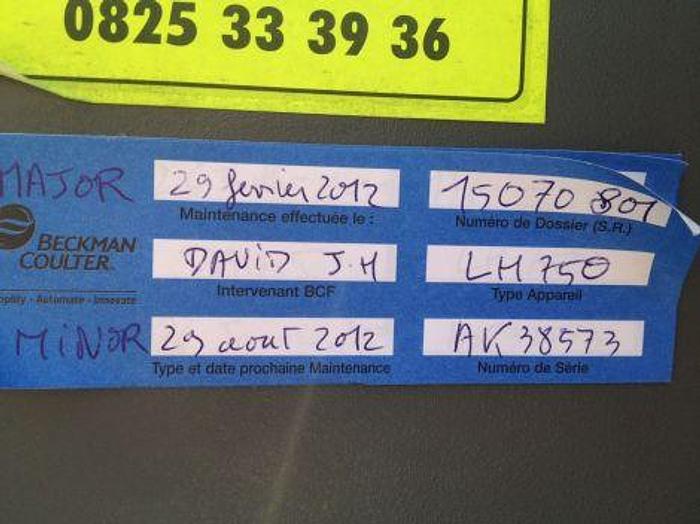 0825 33 39 36
MAJOR 29 fevrier 2012 15070 801
Maintenance effectuée le : Numéro de Dossier (S.R.)
BECKMAN
COULTER
DAVID J.H LH 750
Intervenant BCF Type Appareil
Simplify - Automate - Innovate
MINOR 29 aout 2012 AK38573
Type et date prochaine Maintenance Numéro de Série